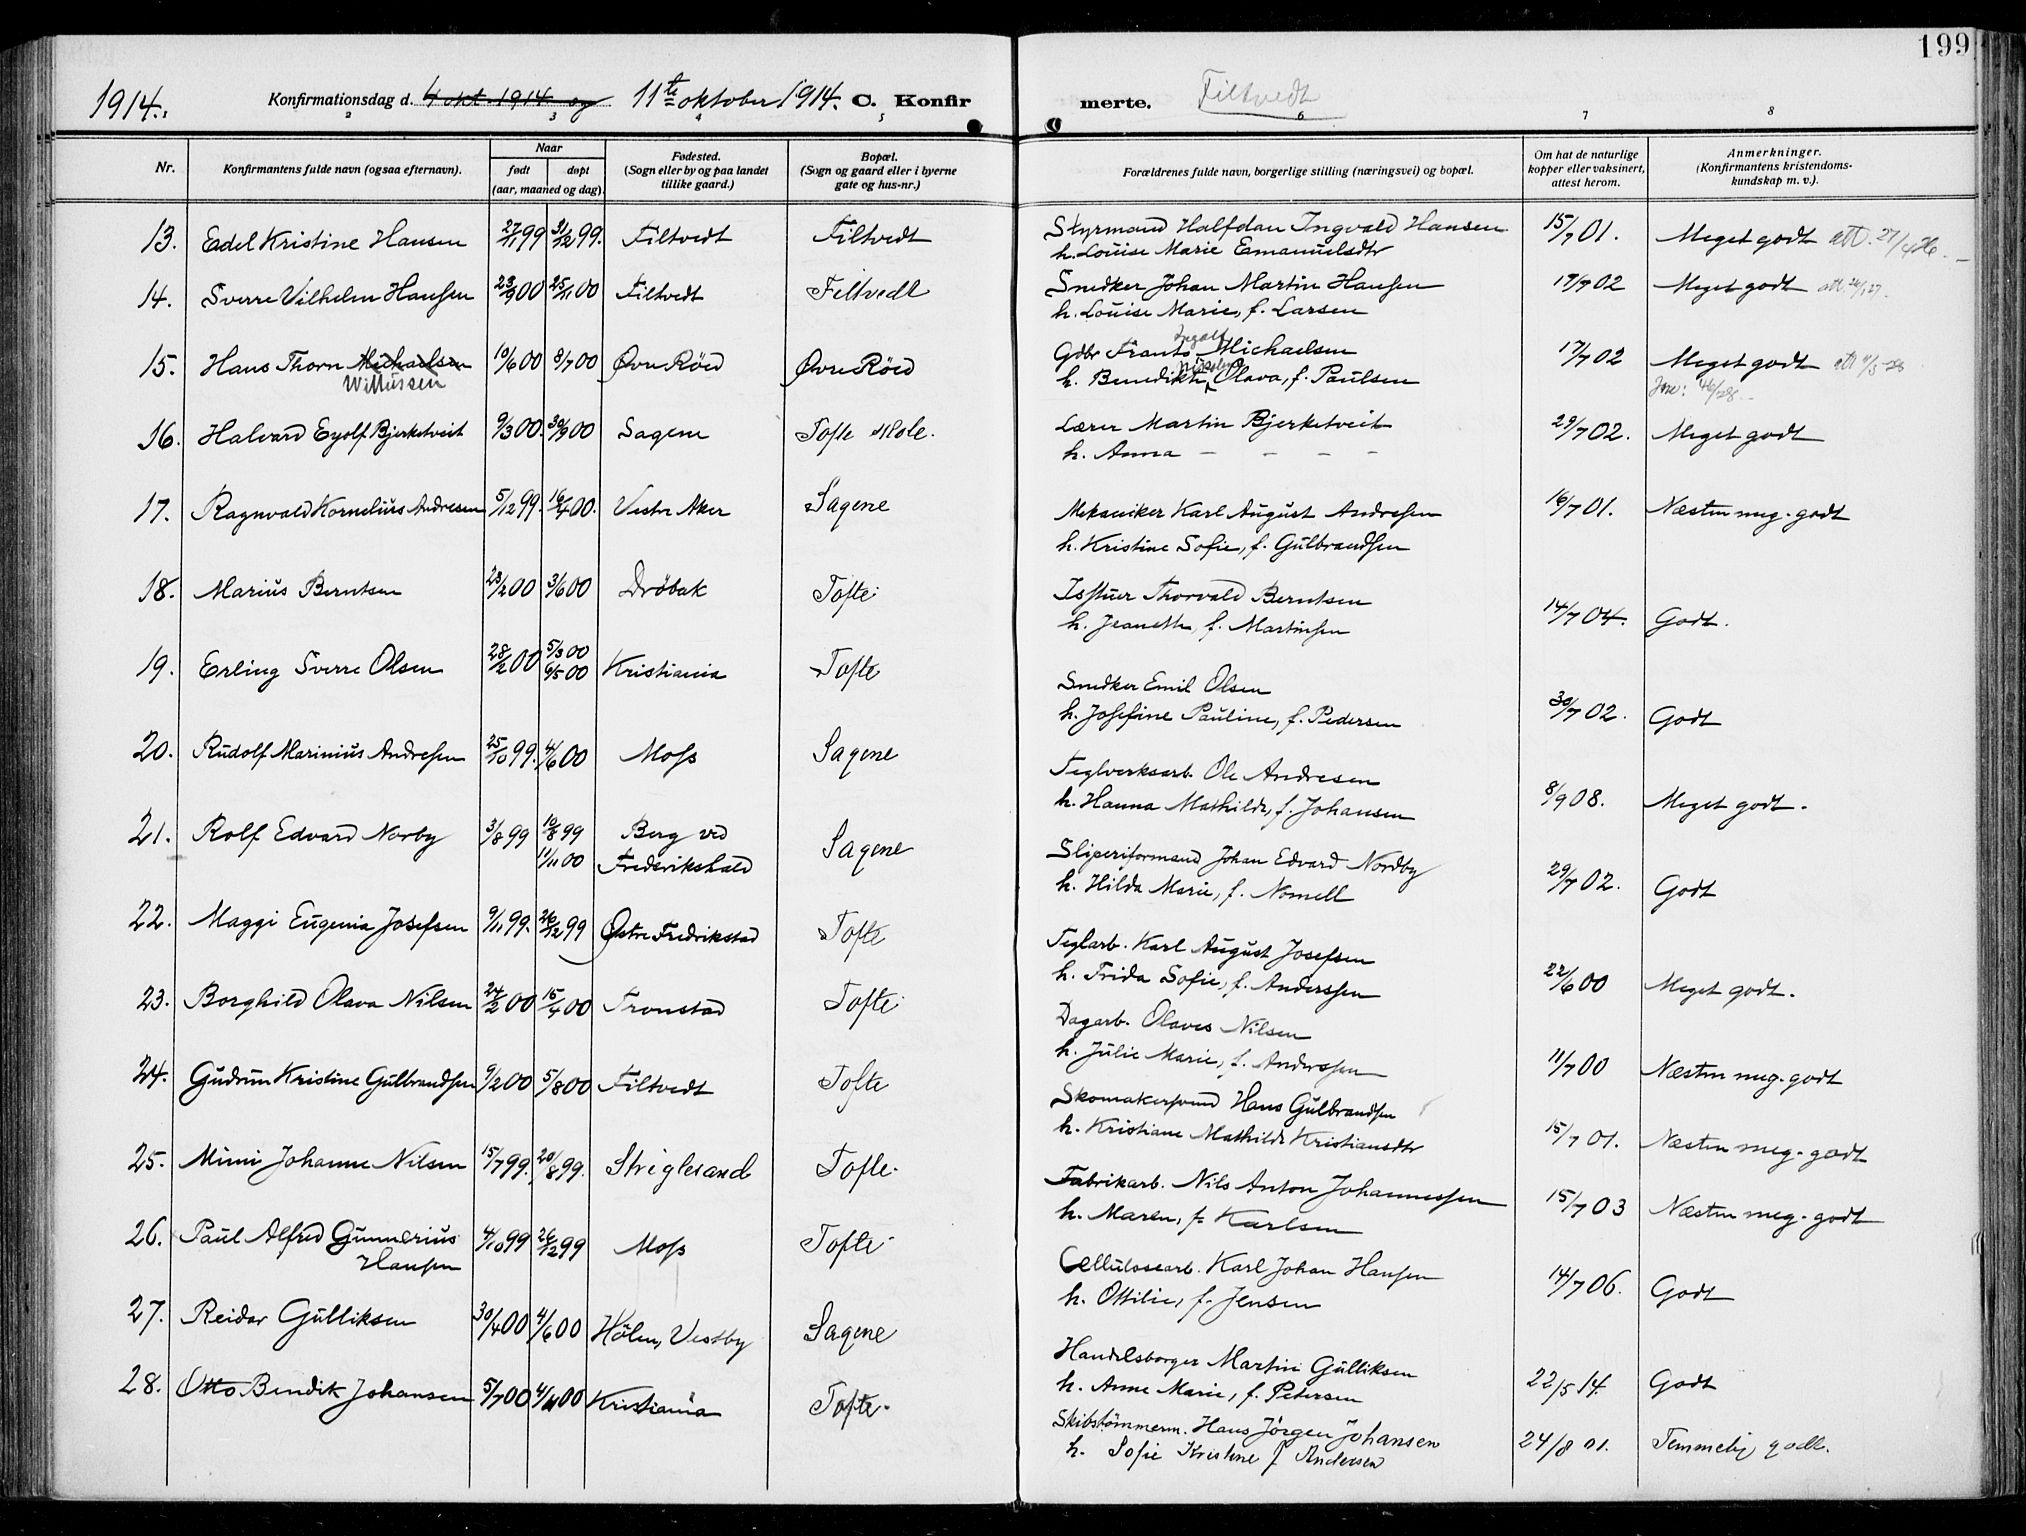 199
1914. Konfirmationsdag d. 4 okt. 1914 og 11te oktober 1914. C. Konfirmerte. Filtvedt
2 3 4 5 6 7 8
Nr. Konfirmantens fulde navn (ogsaa efternavn). Naar født døpt (aar, maaned og dag). Fødested. (Sogn eller by og paa landet tillike gaard.) Bopæl. (Sogn og gaard eller i byerne gate og hus-nr.) Forældrenes fulde navn, borgerlige stilling (næringsvei) og bopæl. Om hat de naturlige kopper eller vaksinert, attest herom. Anmerkninger. (Konfirmantens kristendomskundskap m. v.).
13. Edel Kristine Hansen 27/11 99 31/12 99. Filtvedt Filtvedt Styrmand Halfdan Ingvald Hansen 15/7 01. Meget godt att. 27/4 26.
h. Louise Marie Emanuelsdtr
14. Sverre Vilhelm Hansen 23/9 00 25/11 00 Filtvedt Filtvedt Snedker Johan Martin Hansen 17/7 02 Meget godt
h. Louise Marie, f. Larsen
15. Hans Thorn Michaelsen 10/6 00 8/7 00 Øvre Røed Øvre Røed Gdbr Frants Michaelsen 17/7 02 Meget godt att 11/5-28
Willussen h. Benedikte Olava, f. Paulsen Jnr: 46/28.
16. Halvard Eyolf Bjerketveit 9/3 00. 30/9 00 Sagene Tofte skole. Lærer Martin Bjerketveit 29/7 02. Meget godt
h. Anna — — — —
17. Ragnvald Kornelius Andresen 5/12 99. 16/4 00. Vestre Aker Sagene Mekaniker Karl August Andresen 16/7 01. Næsten meg. godt
h. Kristine Sofie, f. Gulbrandsen
18. Marius Berntsen 23/2 00 3/6 00 Drøbak Tofte Thorvald Berntsen 14/7 04. Godt.
h. Jeanette, f. Martinsen
19. Erling Sverre Olsen 28/2 00 5/3 00 6/5 00 Kristiania Tofte Snedker Emil Olsen 30/7 02. Godt
h. Josefine Pauline, f. Pedersen
20. Rudolf Marinius Andresen 25/10 99. 4/6 00 Moss Sagene Teglverksarb. Ole Andresen 8/9 08. Meget godt.
h. Hanna Mathilde, f. Johansen
21. Rolf Edvard Norby 3/8 99 10/8 99 11/11 00 Berg ved Frederikshald Sagene Sliperiformand Johan Edvard Nordby 29/7 02. Godt
h. Hilda Marie, f. Nomell
22. Maggi Eugenia Josefsen 9/11 99. 26/12 99 Østre Fredrikstad Tofte Teglarb. Karl August Josefsen 22/6 00 Meget godt.
h. Frida Sofie, f. Anderssen
23. Borghild Olava Nilsen 24/2 00 15/4 00 Tronstad Tofte Dagarb. Olaves Nilsen 11/7 00 Næsten meg. godt
h. Julie Marie, f. Anderssen
24. Gudrun Kristine Gulbrandsen 9/2 00 5/8 00 Filtvedt Tofte Skomakersvend Hans Gulbrandsen 15/7 01. Næsten meg. godt
h. Kristiane Mathilde Kristiansdtr
25. Mimi Johanne Nilsen 15/7 99. 20/8 99. Striglesand Tofte. Fabrikarb. Nils Anton Johannessen 15/7 03 Næsten meg. godt
h. Maren, f. Karlsen
26. Paul Alfred Gunnerius Hansen 4/10 99 26/12 99 Moss Tofte Cellulosearb. Karl Johan Hansen 14/7 06. Godt
h. Ottilie, f. Jensen
27. Reidar Gulliksen 30/4 00 4/6 00 Hølen, Vestby Sagene Handelsborger Martin Gulliksen 22/5 14. Godt
h. Anne Marie, f. Petersen
28. Otto Bendik Johansen 5/7 00 4/11 00 Kristiania Tofte. Skibstømmerm. Hans Jørgen Johansen 24/8 01. Temmelig godt.
h. Sofie Kristine f Andersen